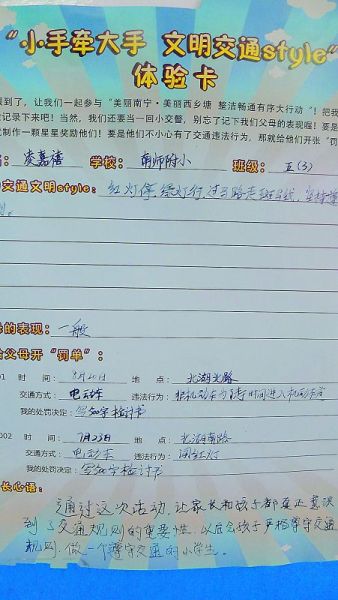 “小手牵大手 文明交通style”
体验卡
到了，让我们一起参与“美丽南宁·美丽西乡塘 整洁畅通有序大行动”！把我
记录下来吧！当然，我们还要当一回小交警，别忘了记下我们父母的表现喔！要是
制作一颗星星奖励他们！要是他们不小心有了交通违法行为，那就给他们开张“罚
：凌嘉禧 学校：南师附小 班级：五(3)
交通文明style：红灯停，绿灯行，过马路走斑马线，
的表现：一般
给父母开“罚单”：
01 时间：7月20日 地点：北湖北路
交通方式：电动车 违法行为：非机动车 时间进入机动车道
我的处罚决定：写 字检讨书
002 时间：7月23日 地点：北湖南路
交通方式：电动车 违法行为：闯红灯
我的处罚决定：写 字检讨书
长心语：
通过这次活动，让家长和孩子都真正意识
到了交通规则的重要性，以后会孩子严格遵守交通
规则，做一个遵守交通的小学生。